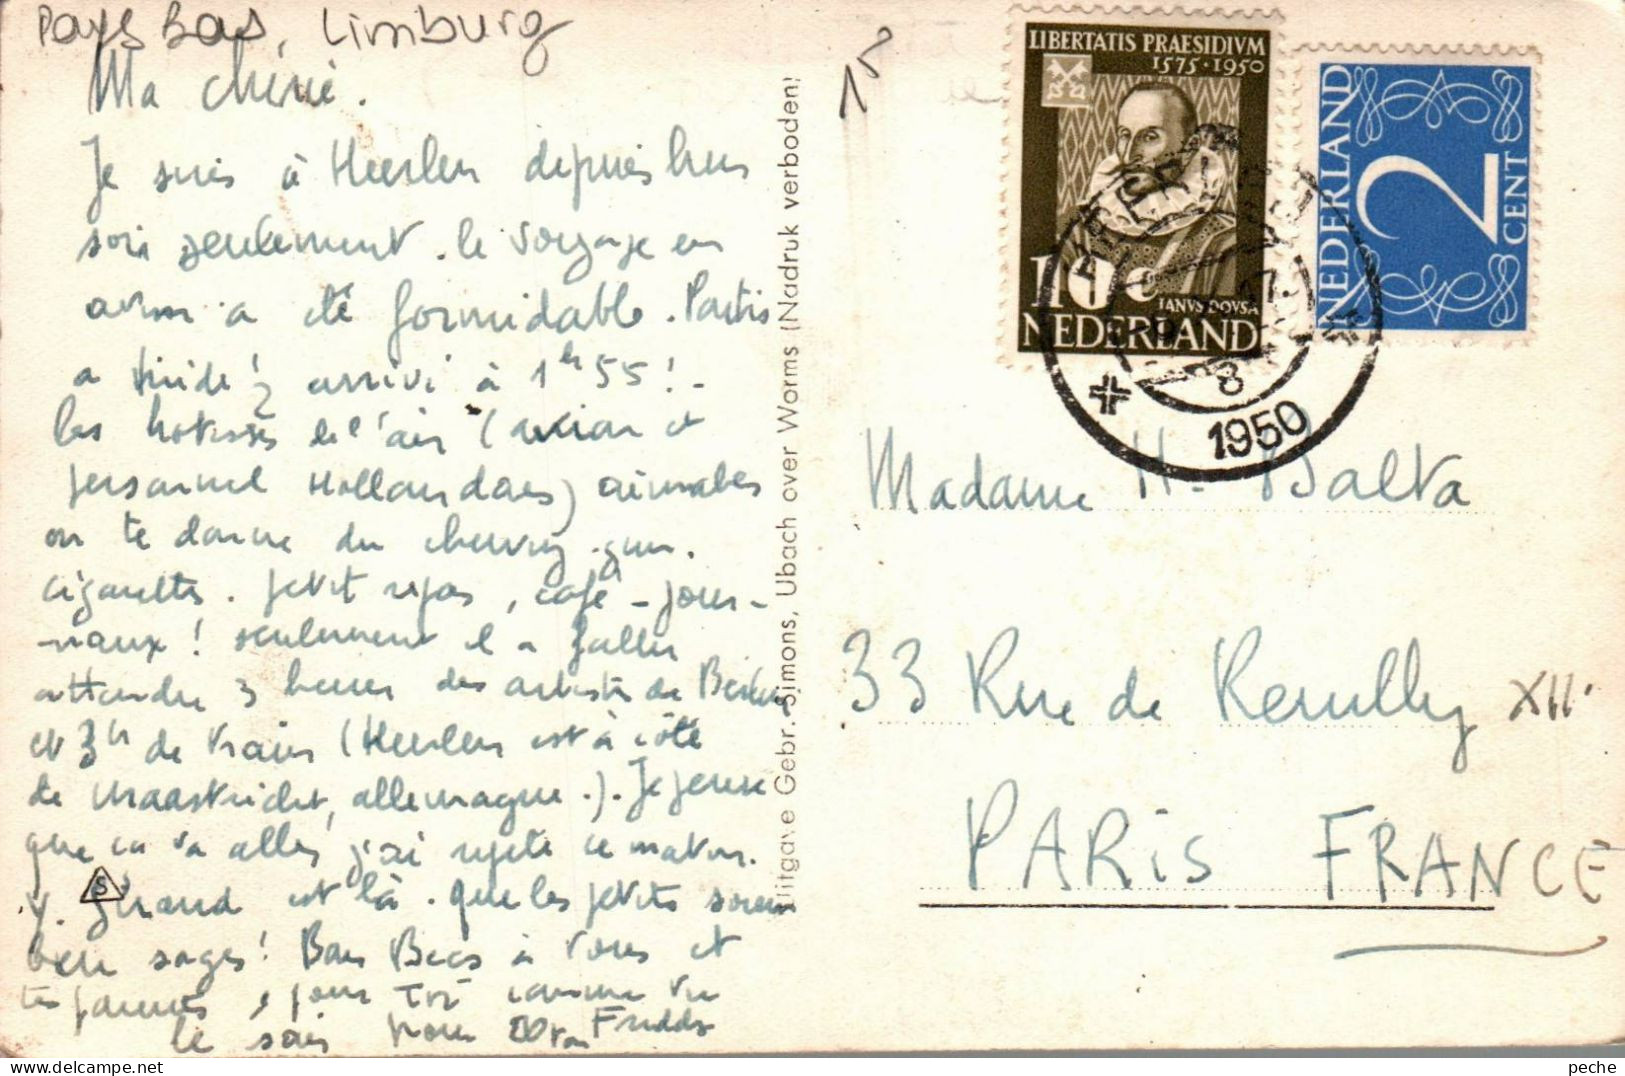 Pays Bas, Limburg
Ma chérie.
Je suis à Heerlen depuis hier
soir seulement. le voyage en
avion a été formidable. Partis
a midi ! arrivé à 1h55 ! -
les hotesses de l'air (avion et
personnel Hollandais) aimables
on te donne du chewing-gum.
cigarettes. petit repas, café - jour-
naux ! seulement il a fallu
attendre 3 heures des artistes de
et 3h de train (Heerlen est à côté
de Maastricht, allemagne.). Je pense
que ca va aller, j'ai répété ce matin.
y. Giraud est là. que les petits soient
bien sages ! Bons Becs à vous et
tes parents, pour toi comme tu
le sais pour Freddy
Uitgave Gebr. Simons, Ubach over Worms (Nadruk verboden)
15
LIBERTATIS PRAESIDIVM
1575 · 1950
10 c
IANVS DOVSA
NEDERLAND
NEDERLAND
2
CENT
8
1950
Madame H. Balta
33 Rue de Reuilly XII
PARIS FRANCE
S
peche